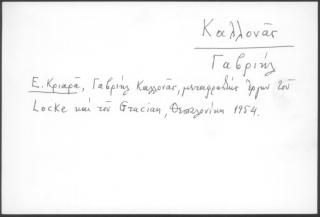 Καλλονᾶς
Γαβριήλ
Ε. Κριαρᾶ, Γαβριήλ Καλλονᾶς, μεταφραστὴς ἔργων τοῦ
Locke καὶ τοῦ Gracian, Θεσσαλονίκη 1954.